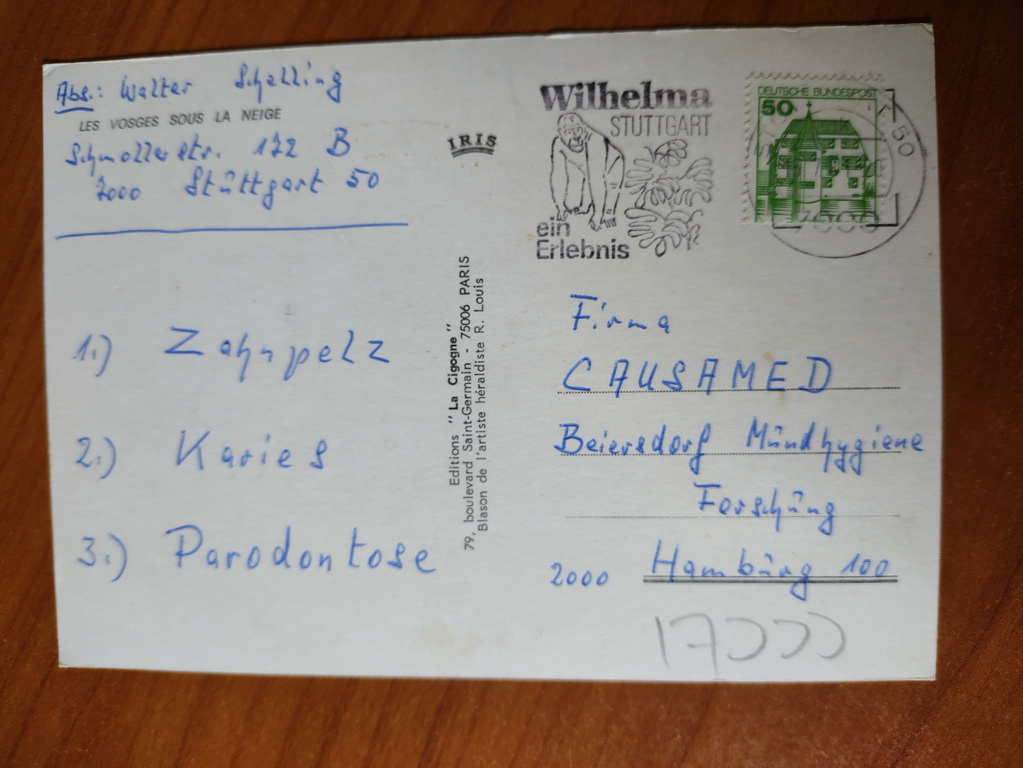 Abs.: Walter Schelling
LES VOSGES SOUS LA NEIGE
Schmollerstr. 122 B
7000 Stuttgart 50
1.) Zahnpelz
2.) Karies
3.) Parodontose
IRIS
Editions "La Cigogne"
79, boulevard Saint-Germain - 75006 PARIS
Blason de l'artiste héraldiste R. Louis
Wilhelma
STUTTGART
ein
Erlebnis
DEUTSCHE BUNDESPOST
50
50
7000
Firma
CAUSAMED
Beiersdorf Mundhygiene
Forschung
2000 Hamburg 100